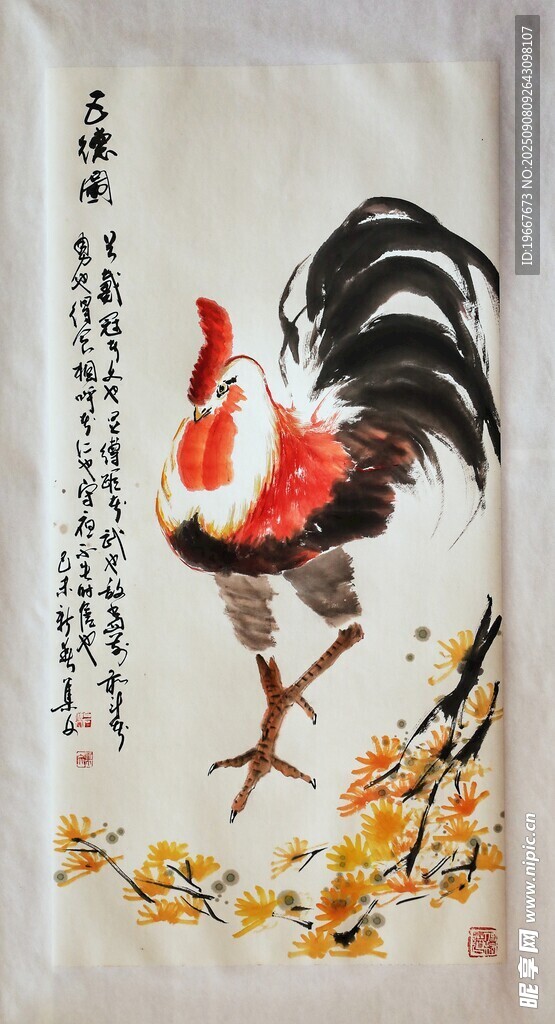 五德圖
首戴冠者文也足缚距者武也敌当前敢斗者
勇也得食相呼者仁也守夜不失时信也
己未新春集文
ID:19667673 NO:20250908092643098107
昵享网 www.nipic.cn